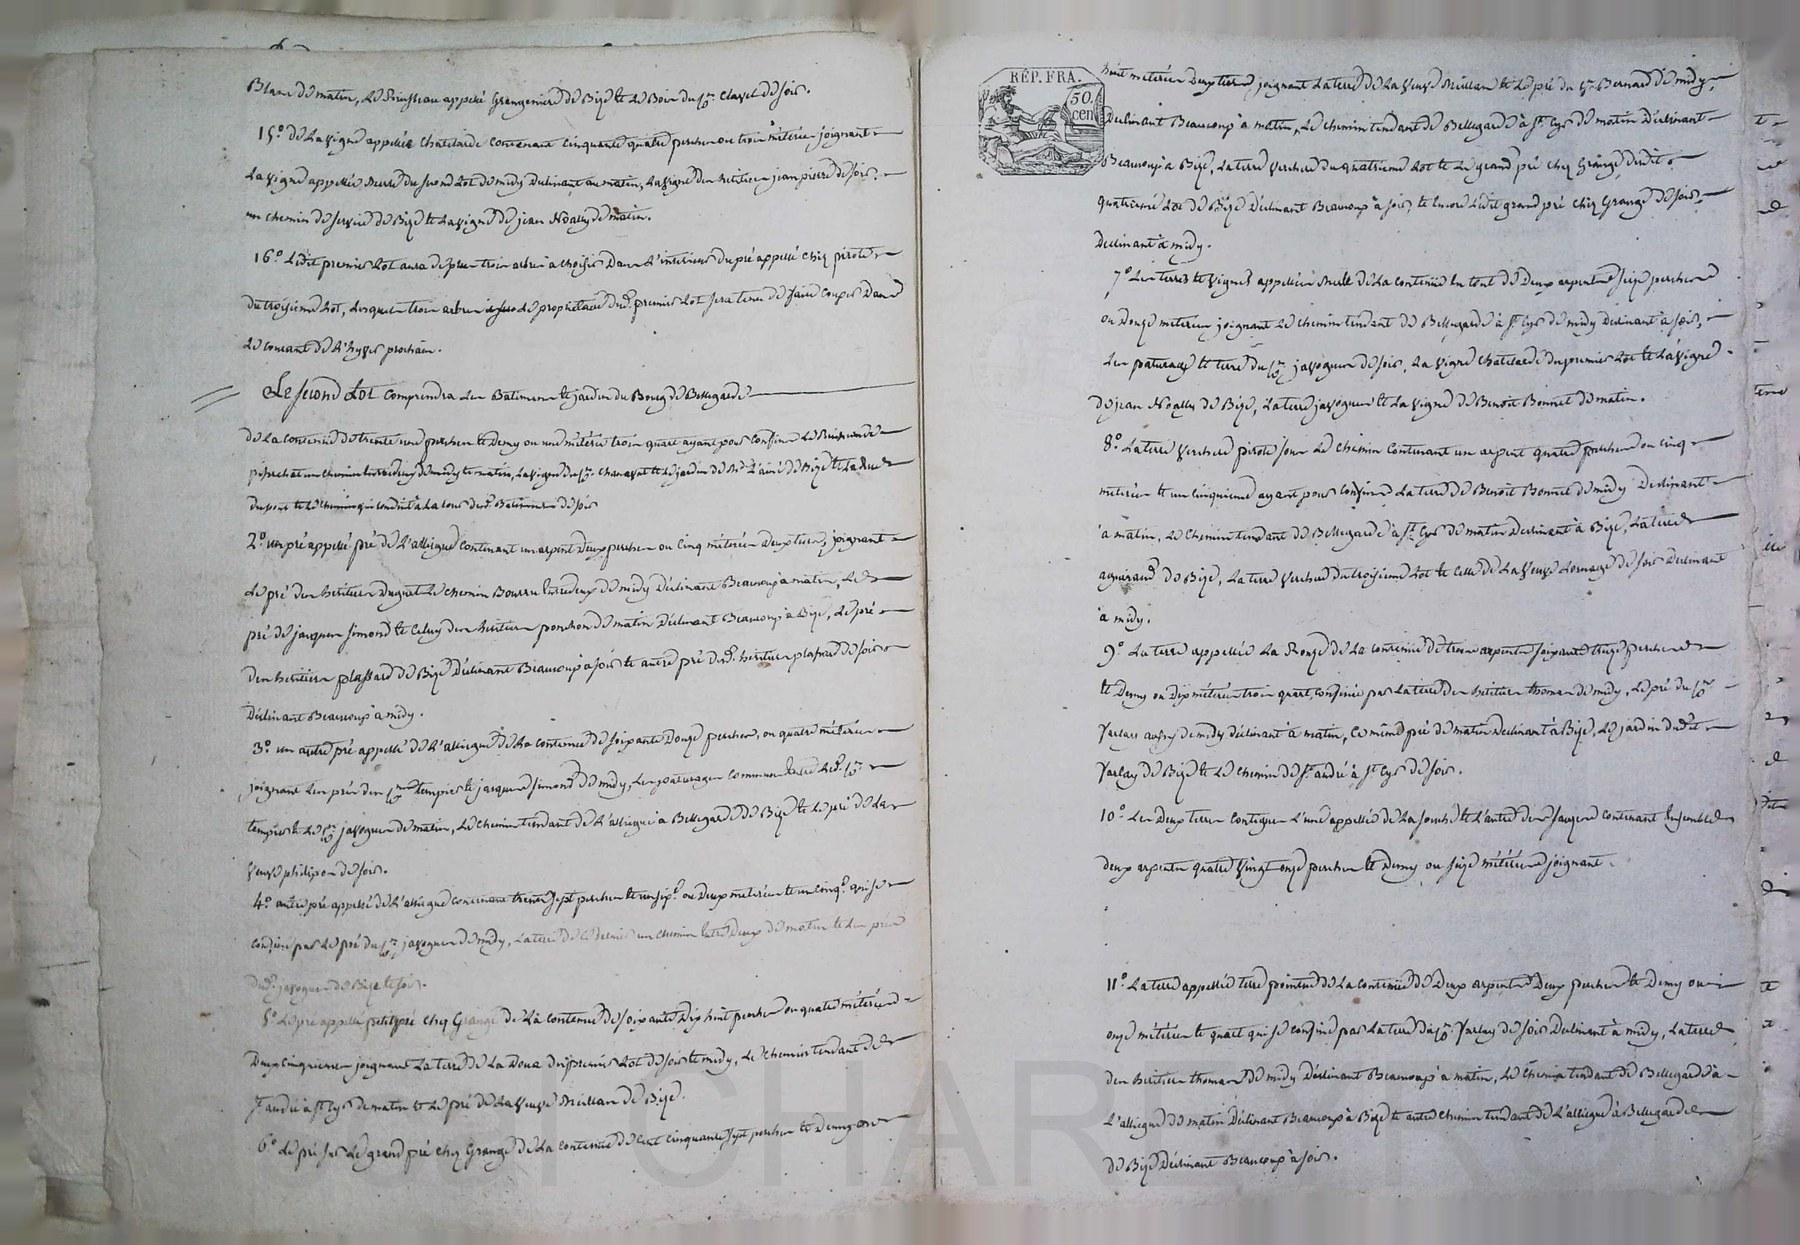 Blanc de matin, le Ruisseau appellé Grangeniere de Bize et le Bois du Sr. Clavel de soir.
15.° de la vigne appellée Chatelarde contenant Cinquante quatre perches ou trois méterées joignant
la vigne appellée du second Lot de midy declinant au matin, la vigne des heritiers jean pierre de soir,
un chemin de servire de Bize et la vigne de jean Noally de matin.
16.° Ledit premier Lot aura de plus trois arbres à choisir Dans l'interieur du pré appellé Chez pirote
du troisieme Lot, lesquels trois arbres le proprietaire dud. premier Lot sera tenu de faire couper Dans
le courant de l'hyver prochain.
Le second Lot comprendra les Batimens et jardin du Bourg de Bellegarde
de la contenue de trente une perches et demy ou une méterée trois quart ayant pour Confins le
un chemin entredeux de midy et matin, la vigne du Sr. Chanavat et le jardin de de Bize et la Rue
et le chemin qui conduit à la cour desd. Batimens de soir
2.° un pré appellé pré de l'alliegue contenant un arpent Deux perches ou Cinq méterées Deux tiers, joignant
le pré des heritiers Duguet le chemin Bourru entredeux de midy declinant Beaucoup à matin, le
pré de jacques simond et Celuy des heritiers ponchon de matin Déclinant Beaucoup à Bize, le pré
des heritiers plassard de Bize Déclinant Beaucoup à soir et autre pré desd. heritiers plassard de soir
Déclinant Beaucoup à midy.
3.° un autre pré appellé de l'alliegue de la contenue de soixante Douze perches, ou quatre méterées
joignant les prés des Srs. tempier et jacques simond de midy, les paturages communs entre led. Sr.
tempier et le Sr. javogues de matin, le chemin tendant de l'alliegue à Bellegarde de Bize et le pré de la
veuve philipon de soir.
4.° autre pré appellé de l'alliegue contenant trente sept perches et un six.e ou Deux meterées et un cinq.e qui se
confine par le pré du Sr. javogues de midy, la terre de un chemin entre Deux de matin et les prés
dud. javogues de Bize et soir.
5.° Le pré appellé petit pré chez Grange de la contenue de soixante Dix huit perches ou quatre méterées
Deux Cinquiemes joignant la terre de la Doua du premier Lot de soir et midy, le chemin tendant de
St. andré à St. Cyr de matin et le pré de la veuve Meillan de Bize.
6.° Le pré sur le grand pré chez Grange de la contenue de Cent Cinquante sept perches et Demy ou
RÉP. FRA.
50.
cen
huit meterées Deux tiers, joignant la terre de la veuve Meillan et le pré du Sr. Bernard de midy,
Declinant Beaucoup à matin, le chemin tendant de Bellegarde à St. Cyr de matin Déclinant
Beaucoup à Bize, la terre verchere du quatrieme Lot et le grand pré chez Grange dudit
quatrieme Lot de Bize Déclinant Beaucoup à soir, et encore ledit grand pré chez Grange de soir,
Declinant à midy.
7.° Les terres et vignes appellées de la contenue en tout de Deux arpents seize perches
ou Douze meterées joignant le chemin tendant de Bellegarde à St. Cyr de midy Declinant à soir,
les paturages et terre du Sr. javogues de soir, la vigne Chatelarde du premier Lot et la vigne
de jean Noally de Bize, la terre javogues et la vigne de Benoit Bonnet de matin.
8.° La terre verchere pirote sous le chemin Contenant un arpent quatre perches ou cinq
meterées et un Cinquieme ayant pour Confins la terre de Benoit Bonnet de midy Declinant
à matin, le chemin tendant de Bellegarde à St. Cyr de matin Declinant à Bize, la terre
de Bize, la terre verchere du troisieme Lot et Celle de la veuve de soir Declinant
à midy.
9.° La terre appellée La Ronze de la contenue de trois arpents soixante treize perches
et Demy ou Dix méterées trois quart, Confinée par la terre des heritiers thomas de midy, le pré du Sr.
Varlay aussy de midy déclinant à matin, Ce même pré de matin Declinant à Bize, le jardin dudit
Varlay de Bize et le chemin de St. andré à St. Cyr de soir.
10.° Les Deux terres Contigues l'une appellée de la et l'autre des contenant Ensemble
deux arpents quatre vingt onze perches et Demy ou seize méterées joignant
11.° La terre appellée terre pointue de la contenue de Deux arpents Deux perches et Demy ou
onze meterées et quart qui se confine par la terre du Sr. Varlay de soir Declinant à midy, la terre
des heritiers thomas de midy Déclinant Beaucoup à matin, le chemin tendant de Bellegarde à
l'alliegue de matin Déclinant Beaucoup à Bize et autre chemin tendant de l'alliegue à Bellegarde
de Bize Declinant Beaucoup à soir.